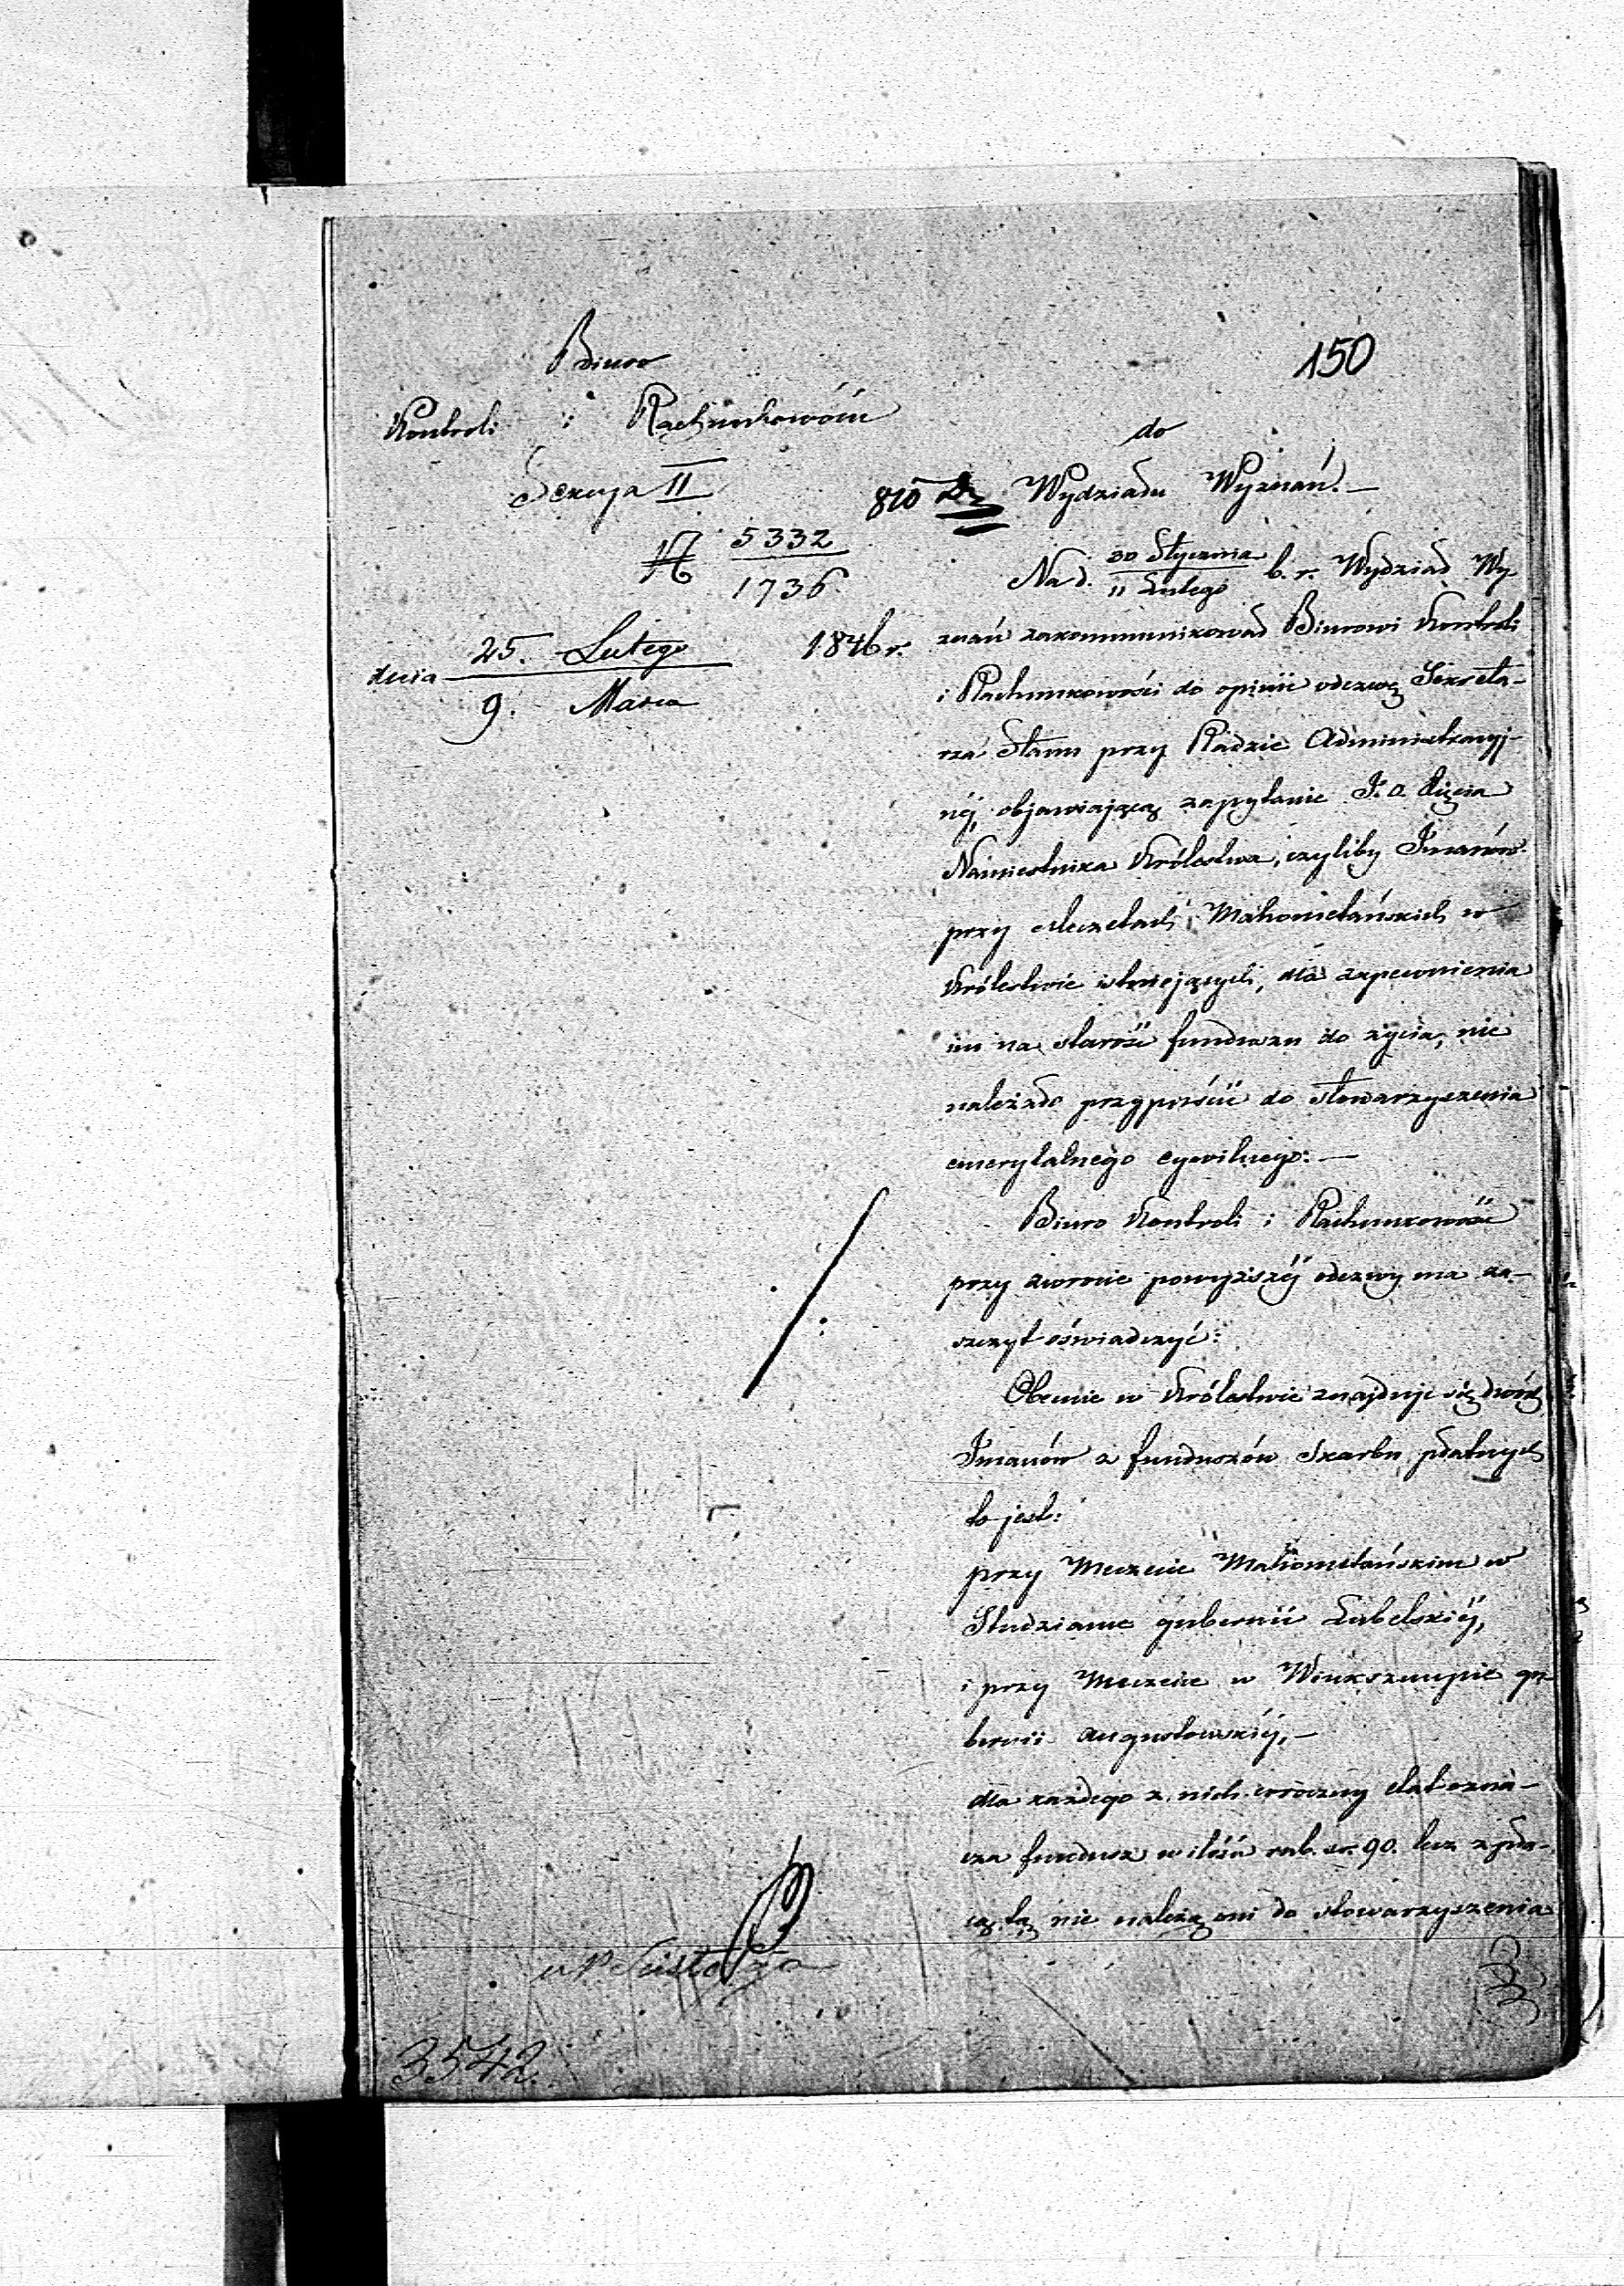 150
Biuro
Kontroli i Rachunkowości
Sekcya II
№ 5332 / 1736
dnia 25. Lutego / 9. Marca 1846 r.
810
do
Wydziału Wyznań.—
Na d. 30 Stycznia / 11 Lutego b. r. Wydział Wy-
znań zakommunikował Biurowi Kontroli
i Rachunkowości do opinii odezwę Sekreta-
rza Stanu przy Radzie Administracyj-
néj, objawiającą zapytanie J. O. Xięcia
Namiestnika Królestwa, czyliby Imanów
przy Meczetach Mahometańskich w
Królestwie istniejących, dla zapewnienia
im na starość funduszu do życia, nie
należało przypuścić do stowarzyszenia
emerytalnego cywilnego:—
Biuro Kontroli i Rachunkowości
przy zwrocie powyższéj odezwy ma za-
szczyt oświadczyć:
Obecnie w Królestwie znajduje się dwóch
Imanów z funduszów Skarbu płatnych
to jest:
przy Meczecie Mahometańskim w
Studziance gubernii Lubelskiéj,
i przy Meczecie w Winksznupie gu-
bernii Augustowskiéj,—
dla każdego z nich coroczny etat ozna-
cza fundusz w ilości rub. sr. 90. lecz z pła-
cą tą nie należą oni do stowarzyszenia
3542.